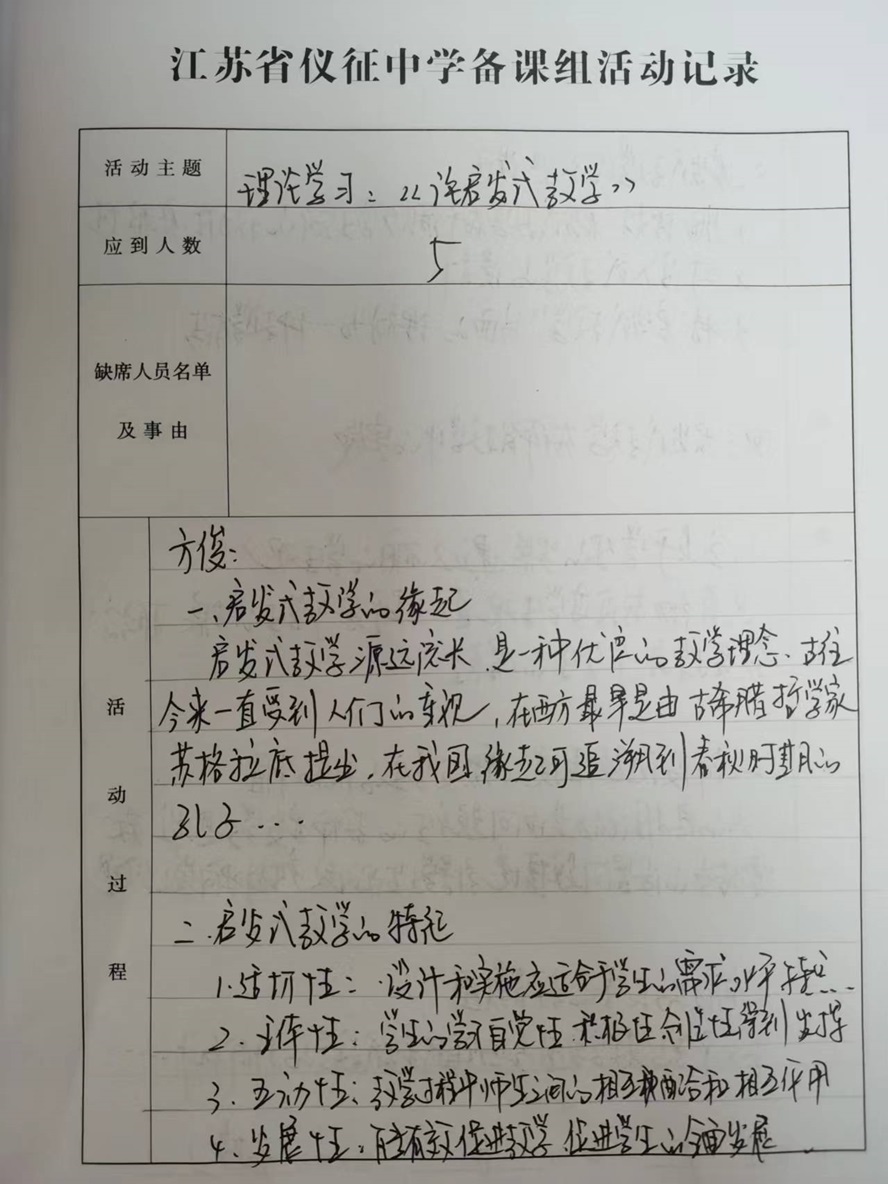 江苏省仪征中学备课组活动记录
活动主题
理论学习：《论启发式教学》
应到人数
5
缺席人员名单
及事由
活动过程
方俊：
一、启发式教学的缘起
启发式教学源远流长，是一种优质的教学理念、古往
今来一直受到人们的重视，在西方最早是由古希腊哲学家
苏格拉底提出，在我国缘起可追溯到春秋时期的
孔子...
二、启发式教学的特征
1.适切性：设计和实施应适合于学生的需求水平特点..
2.主体性：学生的学习自觉性积极性创造性得到发挥
3.互动性：教学过程中师生之间的相互配合和相互作用
4.发展性：有效促进教学，促进学生的全面发展